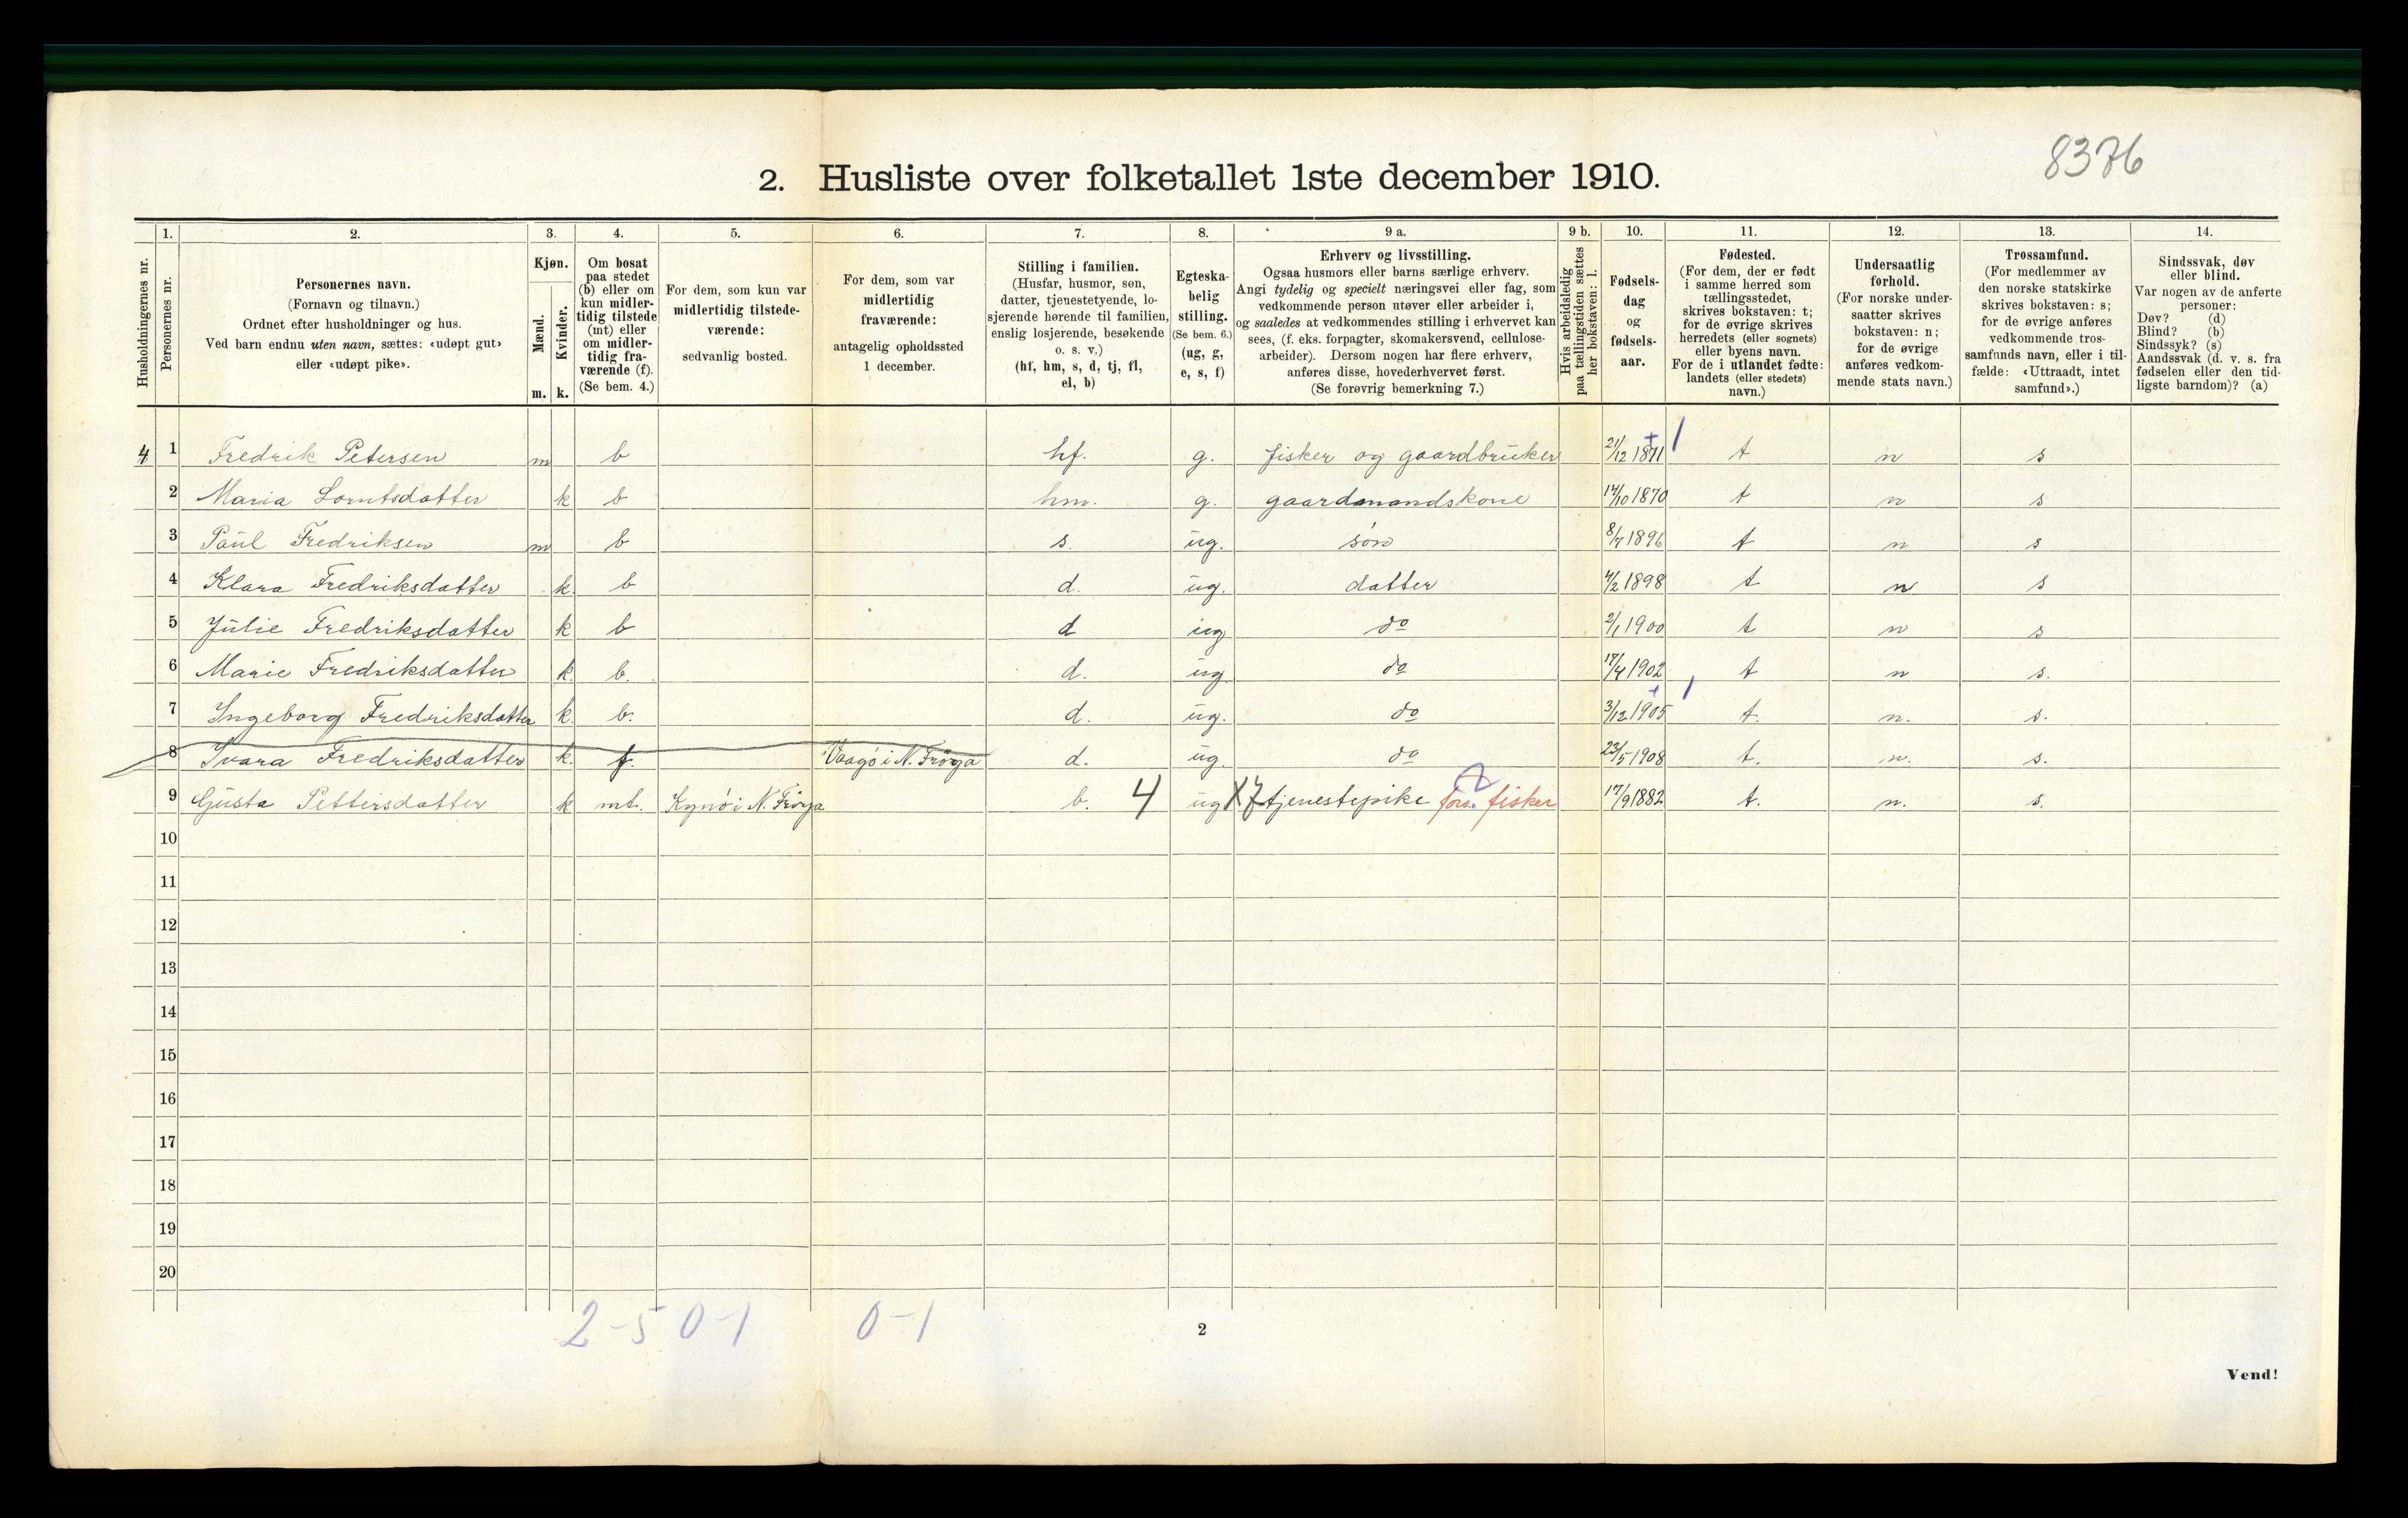 8376
2. Husliste over folketallet 1ste december 1910.
Husholdningernes nr.
1.
Personernes nr.
2.
Personernes navn.
(Fornavn og tilnavn.)
Ordnet efter husholdninger og hus.
Ved barn endnu uten navn, sættes: «udøpt gut»
eller «udøpt pike».
3.
Kjøn.
Mænd.
Kvinder.
m. k.
4.
Om bosat
paa stedet
(b) eller om
kun midler-
tidig tilstede
(mt) eller
om midler-
tidig fra-
værende (f).
(Se bem. 4.)
5.
For dem, som kun var
midlertidig tilstede-
værende:
sedvanlig bosted.
6.
For dem, som var
midlertidig
fraværende:
antagelig opholdssted
1 december.
7.
Stilling i familien.
(Husfar, husmor, søn,
datter, tjenestetyende, lo-
sjerende hørende til familien,
enslig losjerende, besøkende
o. s. v.)
(hf, hm, s, d, tj, fl,
el, b)
8.
Egteska-
belig
stilling.
(Se bem. 6.)
(ug, g,
e, s, f)
9 a.
Erhverv og livsstilling.
Ogsaa husmors eller barns særlige erhverv.
Angi tydelig og specielt næringsvei eller fag, som
vedkommende person utøver eller arbeider i,
og saaledes at vedkommendes stilling i erhvervet kan
sees, (f. eks. forpagter, skomakersvend, cellulose-
arbeider). Dersom nogen har flere erhverv,
anføres disse, hovederhvervet først.
(Se forøvrig bemerkning 7.)
9 b.
Hvis arbeidsledig
paa tællingstiden sættes
her bokstaven: l.
10.
Fødsels-
dag
og
fødsels-
aar.
11.
Fødested.
(For dem, der er født
i samme herred som
tællingsstedet,
skrives bokstaven: t;
for de øvrige skrives
herredets (eller sognets)
eller byens navn.
For de i utlandet fødte:
landets (eller stedets)
navn.)
12.
Undersaatlig
forhold.
(For norske under-
saatter skrives
bokstaven: n;
for de øvrige
anføres vedkom-
mende stats navn.)
13.
Trossamfund.
(For medlemmer av
den norske statskirke
skrives bokstaven: s;
for de øvrige anføres
vedkommende tros-
samfunds navn, eller i til-
fælde: «Uttraadt, intet
samfund».)
14.
Sindssvak, døv
eller blind.
Var nogen av de anførte
personer:
Døv? (d)
Blind? (b)
Sindssyk? (s)
Aandssvak (d. v. s. fra
fødselen eller den tid-
ligste barndom)? (a)
4 1 Fredrik Petersen m b hf. g. fisker og gaardbruker 21/12 1871 t n s
2 Maria Lorntsdatter k b hm. g. gaardmandskone 14/10 1870 t n s
3 Paul Fredriksen m b s. ug. søn 8/7 1896 t n s
4 Klara Fredriksdatter k. b d. ug. datter 4/2 1898 t n s
5 Julie Fredriksdatter k b d ug do 2/1 1900 t n s
6 Marie Fredriksdatter k. b. d. ug do 17/4 1902 t n s.
7 Ingeborg Fredriksdatter k. b. d. ug. do 3/12 1905 t. n. s.
8 Svara Fredriksdatter k. f. Vaagø i N. Frøya d. ug. do 23/5 1908 t. n. s.
9 Gusta Pettersdatter k mt. Kynø i N. Frøya b. 4 ug X7 tjenestepike fors. fisker 17/9 1882 t. n. s.
10
11
12
13
14
15
16
17
18
19
20
2-5 0-1 0-1
2
Vend!